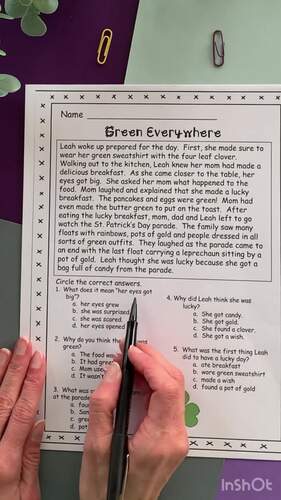 Name
Green Everywhere
Leah woke up prepared for the day. First, she made sure to
wear her green sweatshirt with the four leaf clover.
Walking out to the kitchen, Leah knew her mom had made a
delicious breakfast. As she came closer to the table, her
eyes got big. She asked her mom what happened to the
food. Mom laughed and explained that she made a lucky
breakfast. The pancakes and eggs were green! Mom had
even made the butter green to put on the toast. After
eating the lucky breakfast, mom, dad and Leah left to go
watch the St. Patrick's Day parade. The family saw many
floats with rainbows, pots of gold and people dressed in all
sorts of green outfits. They laughed as the parade came to
an end with the last float carrying a leprechaun sitting by a
pot of gold. Leah thought she was lucky because she got a
bag full of candy from the parade.
Circle the correct answers.
1. What does it mean "her eyes got
big"?
a. her eyes grew
b. she was surprised
c. she was scared
d. her eyes opened
2. Why do you think the
green?
a. The food wa
b. It had gree
c. Mom use
d. It wasn't
3. What was
at the parade
a. fou
b. San
c. gre
d. pot
4. Why did Leah think she was
lucky?
a. She got candy.
b. She got gold.
c. She found a clover.
d. She got a wish.
5. What was the first thing Leah
did to have a lucky day?
a. ate breakfast
b. wore green sweatshirt
c. made a wish
d. found a pot of gold
InShOt